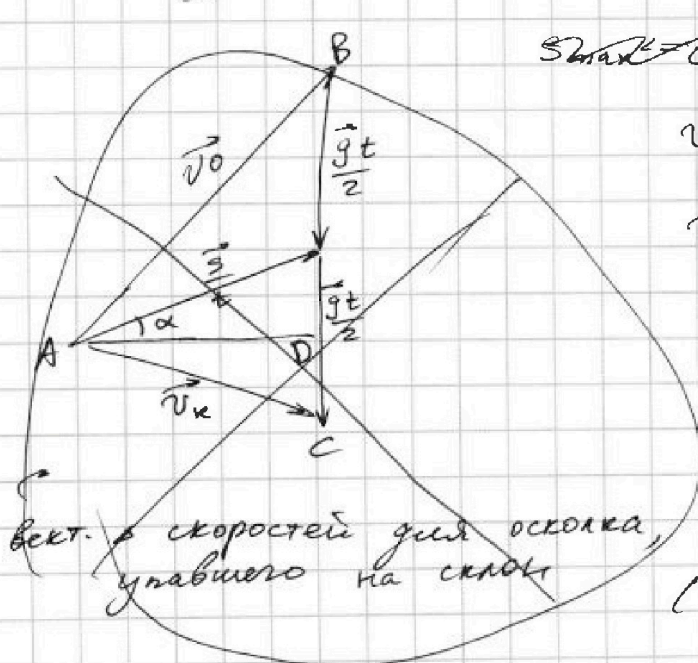 B
v⃗0
g⃗t/2
s⃗/t
g⃗t/2
α
A
D
v⃗к
C
вект. скоростей для осколка,
упавшего на склон